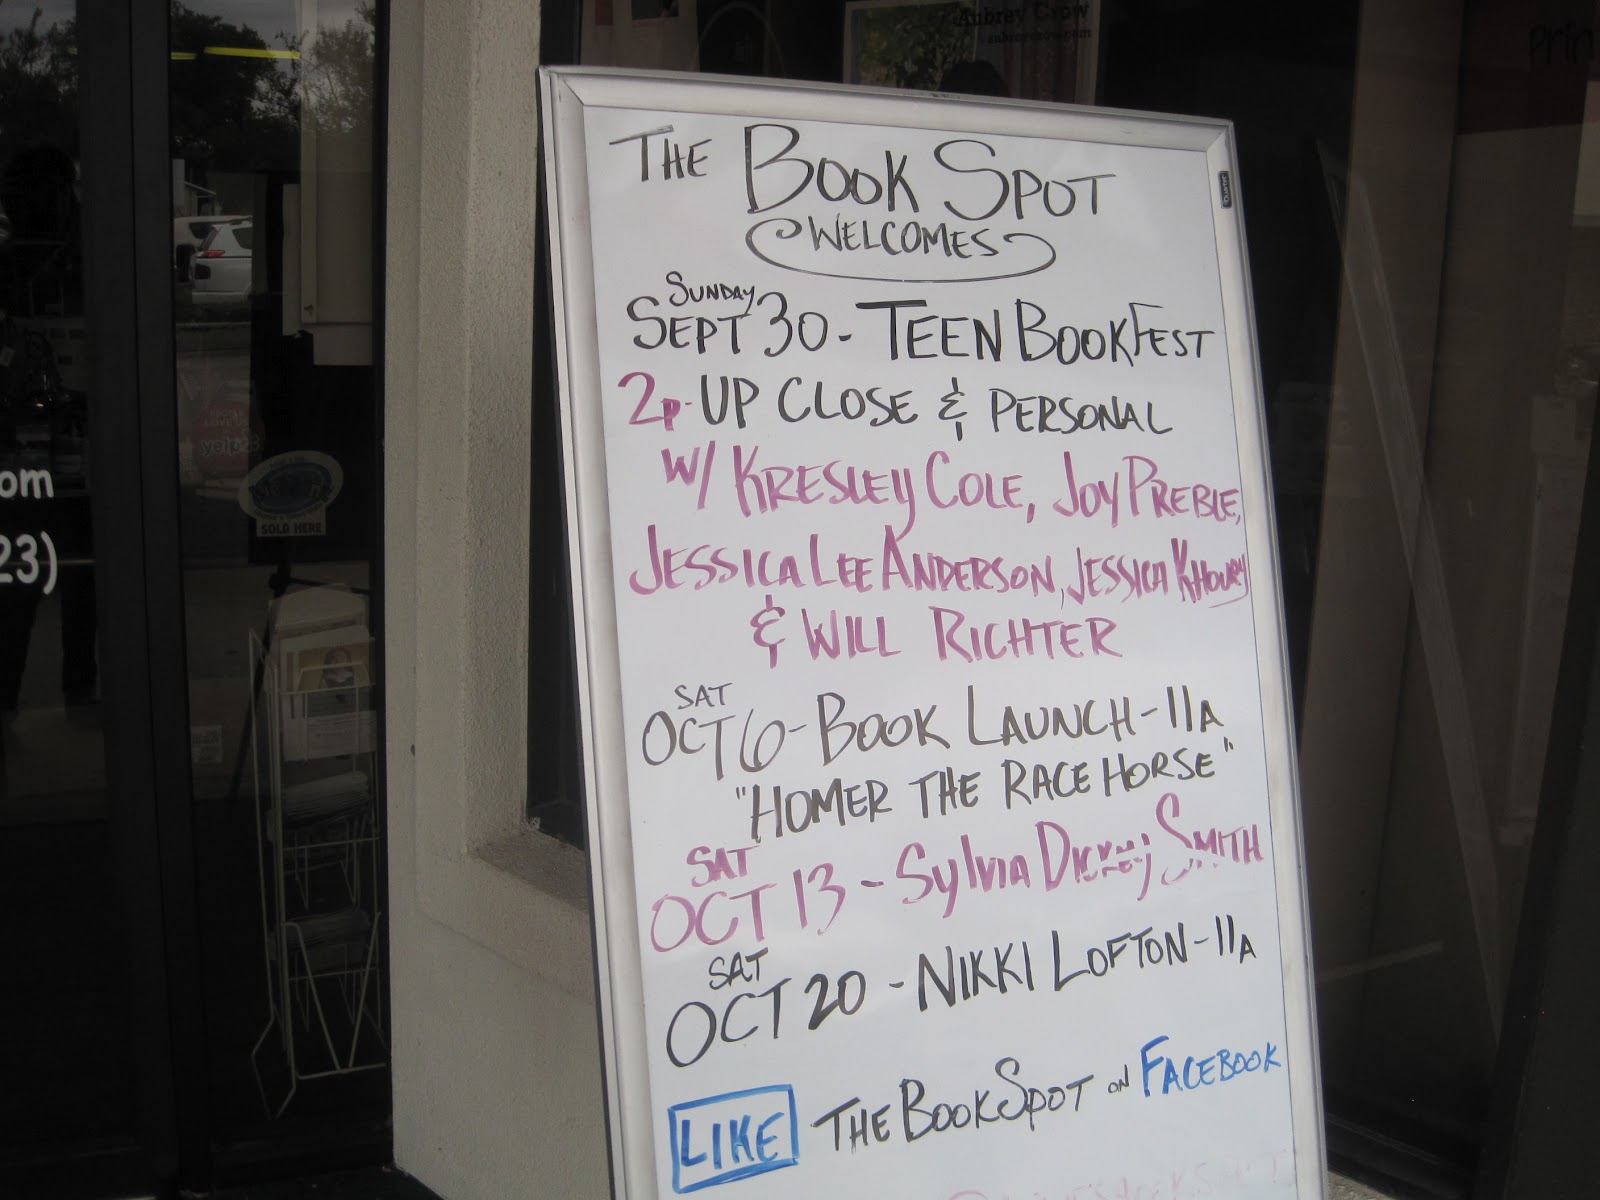 Aubrey Crow
aubreycrow.com
Prin
THE BOOK SPOT
WELCOMES
SUNDAY
SEPT 30 - TEEN BOOKFEST
2P - UP CLOSE & PERSONAL
W/ KRESLEY COLE, JOY PREBLE,
JESSICA LEE ANDERSON, JESSICA KHOURY
& WILL RICHTER
SAT
OCT 6 - BOOK LAUNCH - 11A
"HOMER THE RACE HORSE"
SAT
OCT 13 - SYLVIA DICKEY SMITH
SAT
OCT 20 - NIKKI LOFTON - 11A
LIKE THE BOOK SPOT ON FACEBOOK
om
23)
yelp
SOLD HERE
Quartet